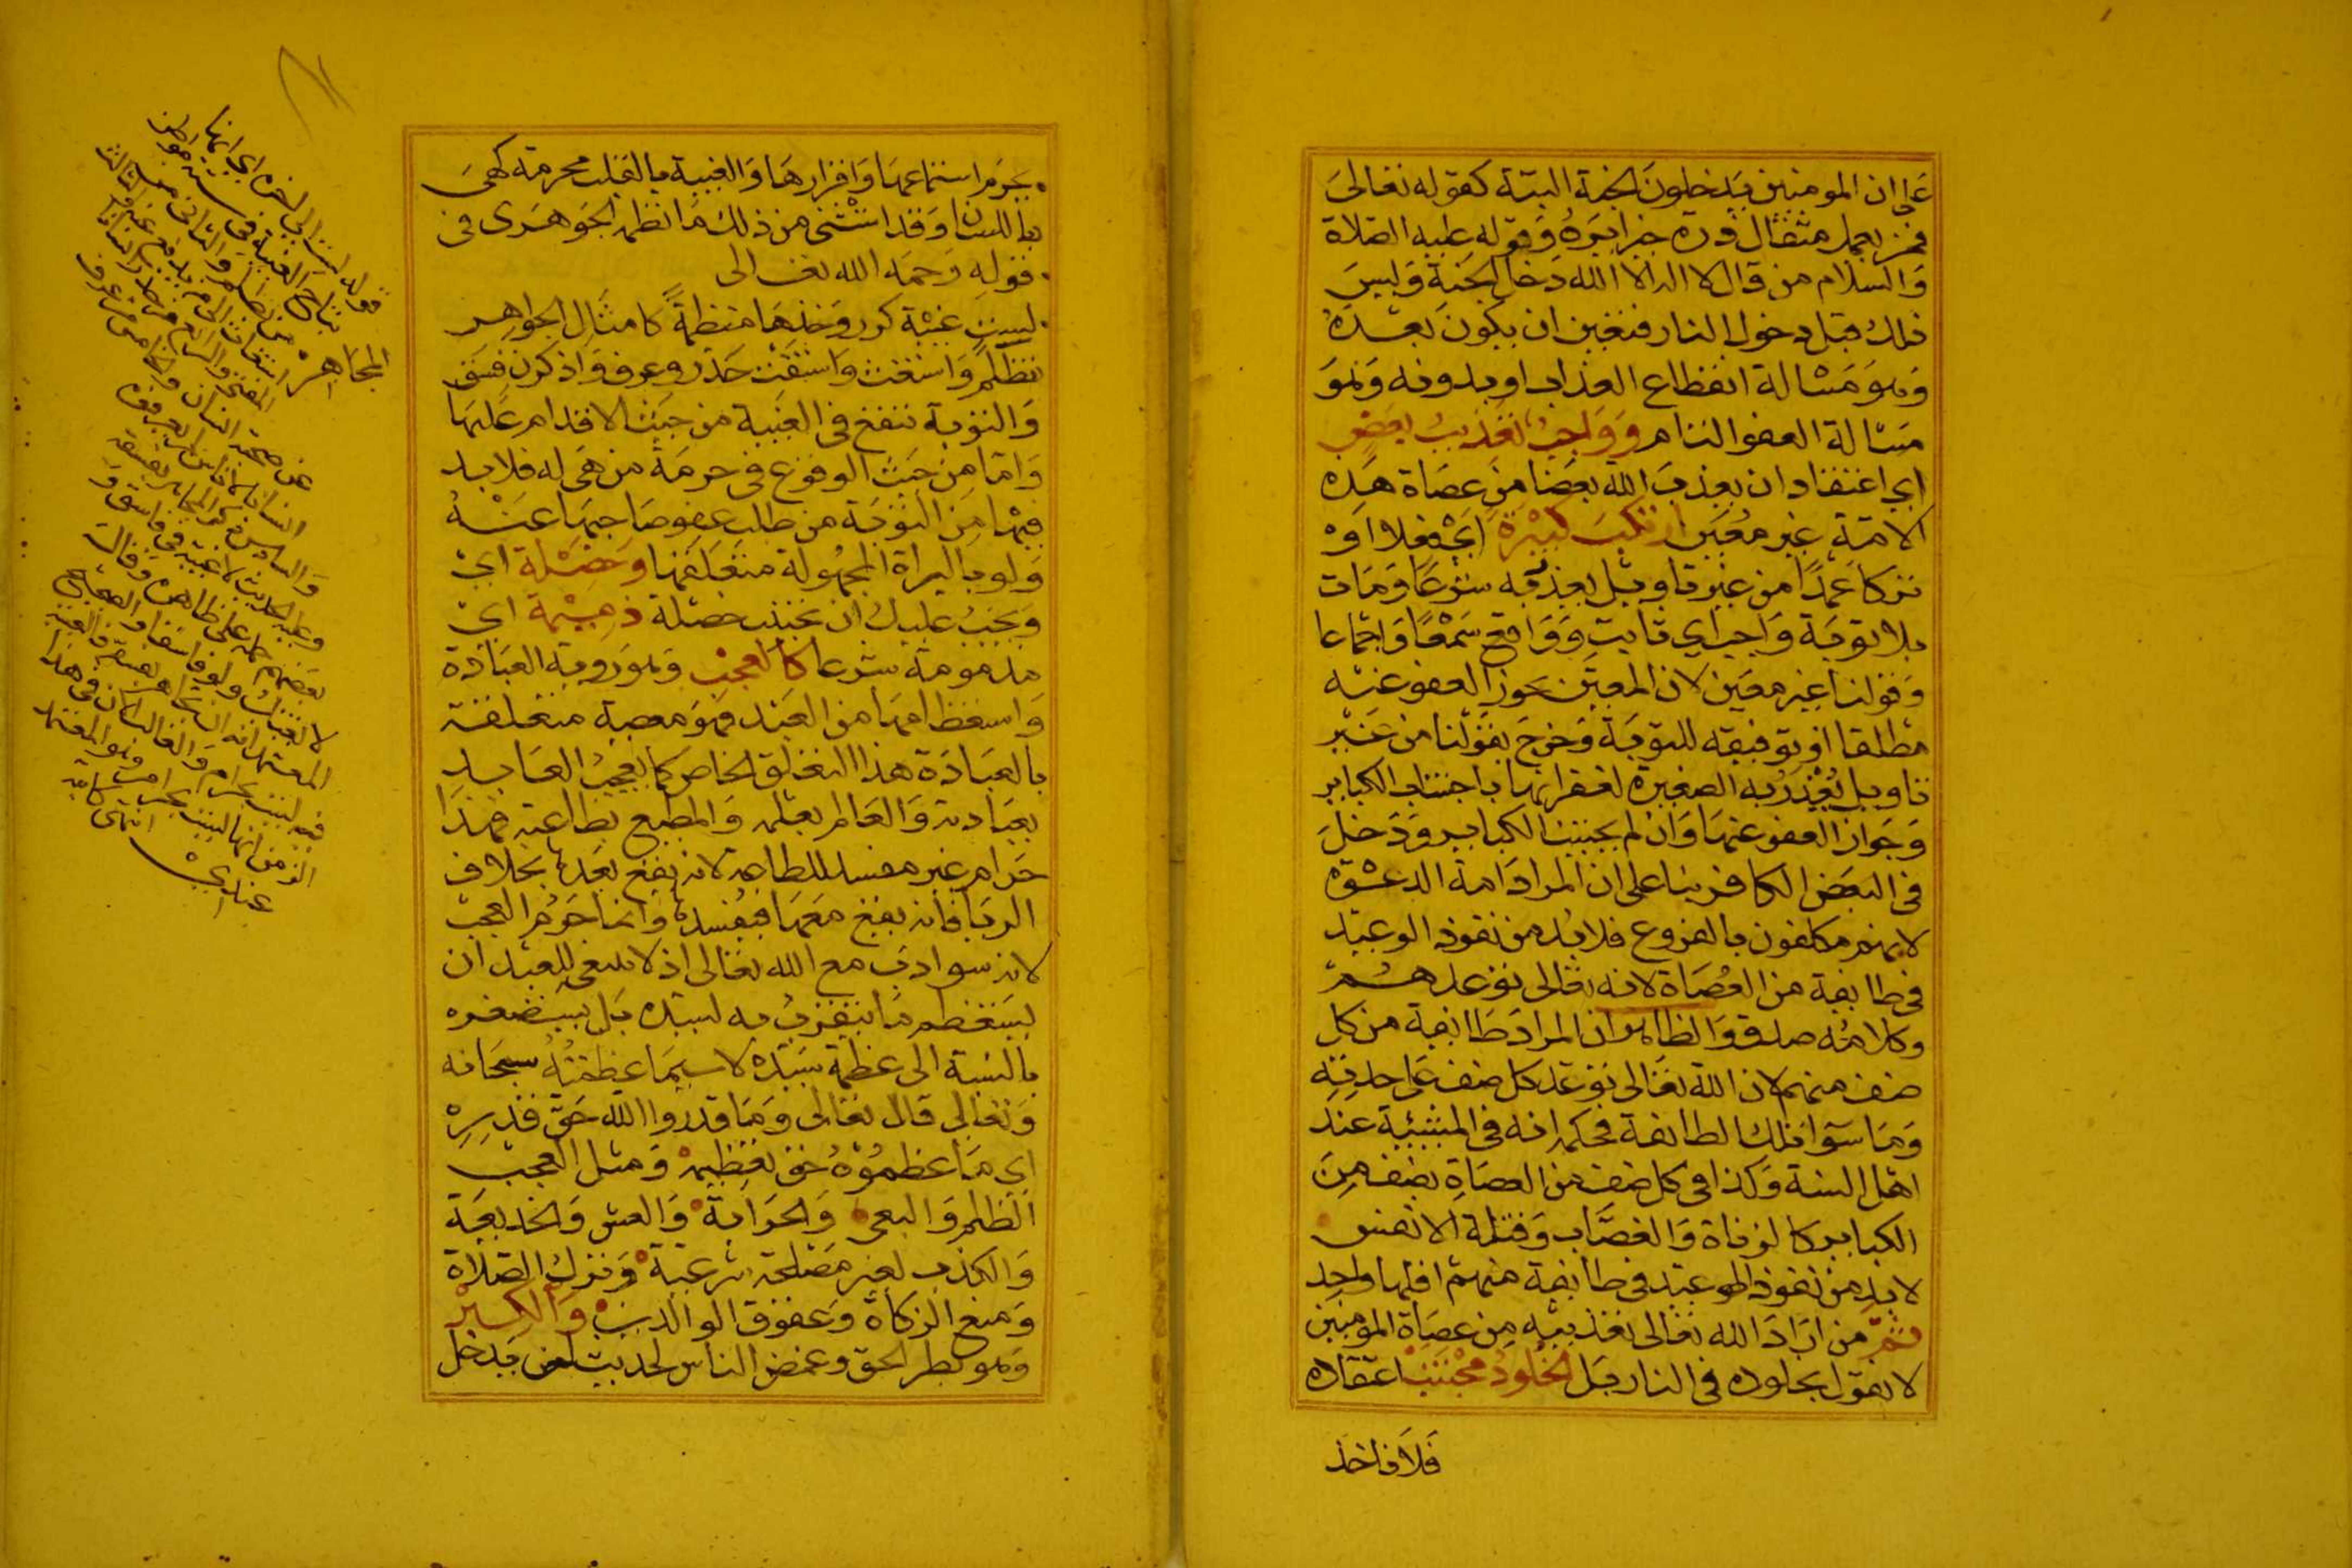 على ان المومنين يدخلون الجنة البتة كقوله تعالى
فمن يعمل مثقال ذرة خيرا يره وقوله عليه الصلاة
والسلام من قال لا اله الا الله دخل الجنة وليس
ذلك قبل دخول النار فتعين ان يكون بعده
وهو مسالة انقطاع العذاب او بدونه وهو
مسالة العفو التام وواجب تعذيب بعض
اي اعتقاد ان يعذب الله بعضا من عصاة هذه
الامة غير معين ارتكب كبيرة اي فعلا او
تركا عمدا من غير تاويل يعذر به شرعا ومات
بلا توبة واجب اي ثابت وواقع سمعا واجماعا
وقولنا غير معين لان المعين يجوز العفو عنه
مطلقا او توفيقه للتوبة وخرج بقولنا من غير
تاويل يعذر به الصغيرة لغفرانها باجتناب الكباير
وجواز العفو عنها وان لم يجتنب الكباير ودخل
في البعض الكافر بنا على ان المراد امة الدعوة
لانهم مكلفون بالفروع فلا بد من نفوذ الوعيد
في طايفة من العصاة لانه تعالى توعدهم
وكلامه صدق والظاهر ان المراد طايفة من كل
صنف منهم لان الله تعالى توعد كل صنف على حدته
وما سوا تلك الطايفة فحكمه انه في المشيئة عند
اهل السنة وكذا في كل صنف من العصاة بصنف من
الكباير كالزناة والغصاب وقتلة الانفس
لا بد من نفوذ الوعيد في طايفة منهم اقلها واحد
ثم من اراد الله تعالى تعذيبه من عصاة المومنين
لا نقول بخلوده في النار بل الخلود مجتنب اعتقاده
فلا ناخذ
يحرم استماعها واقرارها والغيبة بالقلب محرمة كهي
باللسان وقد استثنى من ذلك ما نظمه الجوهري في
قوله رحمه الله تعالى
لست غيبة كرر وخذها منظمة كامثال الجواهر
تظلم واستغث واستفت حذر وعرف واذكرن فسق
والتوبة تنفع في الغيبة من حيث الاقدام عليها
واما من حيث الوقوع في حرمة من هي له فلا بد
فيها من التوبة من طلب عفو صاحبها عنه
ولو بالبراة المجهولة متعلقها وخصلة اي
ويجب عليك ان تجتنب خصلة ذميمة اي
مذمومة شرعا كالعجب وهو روية العبادة
واستعظامها من العبد فهو معصية متعلقة
بالعبادة هذا التعلق الخاص كما يعجب العابد
بعبادته والعالم بعلمه والمطيع بطاعته فهذا
حرام غير مفسد للطاعة لانه يقع بعدها بخلاف
الريا فانه يقع معها فيفسدها وانما حرم العجب
لانه سوادب مع الله تعالى اذ لا ينبغي للعبد ان
يستعظم ما يتقرب به لسيده بل يستصغره
بالنسبة الى عظمة سيده لا سيما عظمته سبحانه
وتعالى قال تعالى وما قدروا الله حق قدره
اي ما عظموه حق تعظيمه ومثل العجب
الظلم والبغي والحرابة والغش والخديعة
والكذب لغير مصلحة شرعية وترك الصلاة
ومنع الزكاة وعقوق الوالدين والكبر
وهو بطر الحق وغمص الناس لحديث لن يدخل
قوله لست الى اخره اي انها
تباح الغيبة في ستة مواطن
الجاهر
عن صحة
والسادس
وعليه الحديث لا غيبة في فاسق و
بعضهم حمله على ظاهره وقال
لا غيبة ولو فاسقا والصحيح
المعتمد انه ان تجاهر بفسقه فالغيبة
فيه ليست بحرام والغالب الان في هذا
الزمن انها ليست بحرام وهو المعتمد
عندي انتهى كاتبه